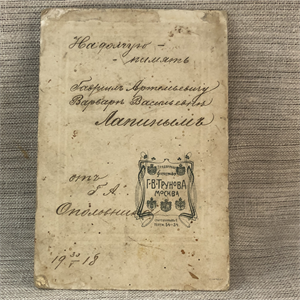 На долгую –
память
Гавриилъ Артемьевичу
Варваръ Васильевнъ
Лапинымъ
отъ
Г. А.
Г.В. ТРУНОВА
МОСКВА
19 30/I 18